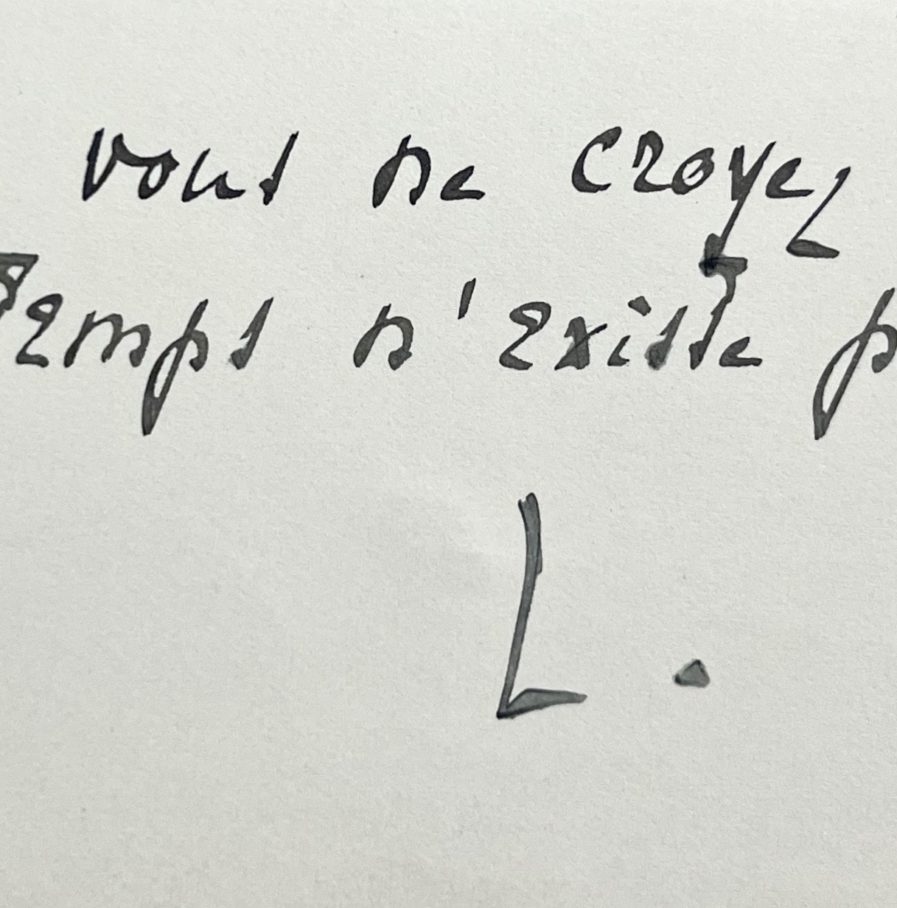 vous ne croyez
Temps n'existe p
L.